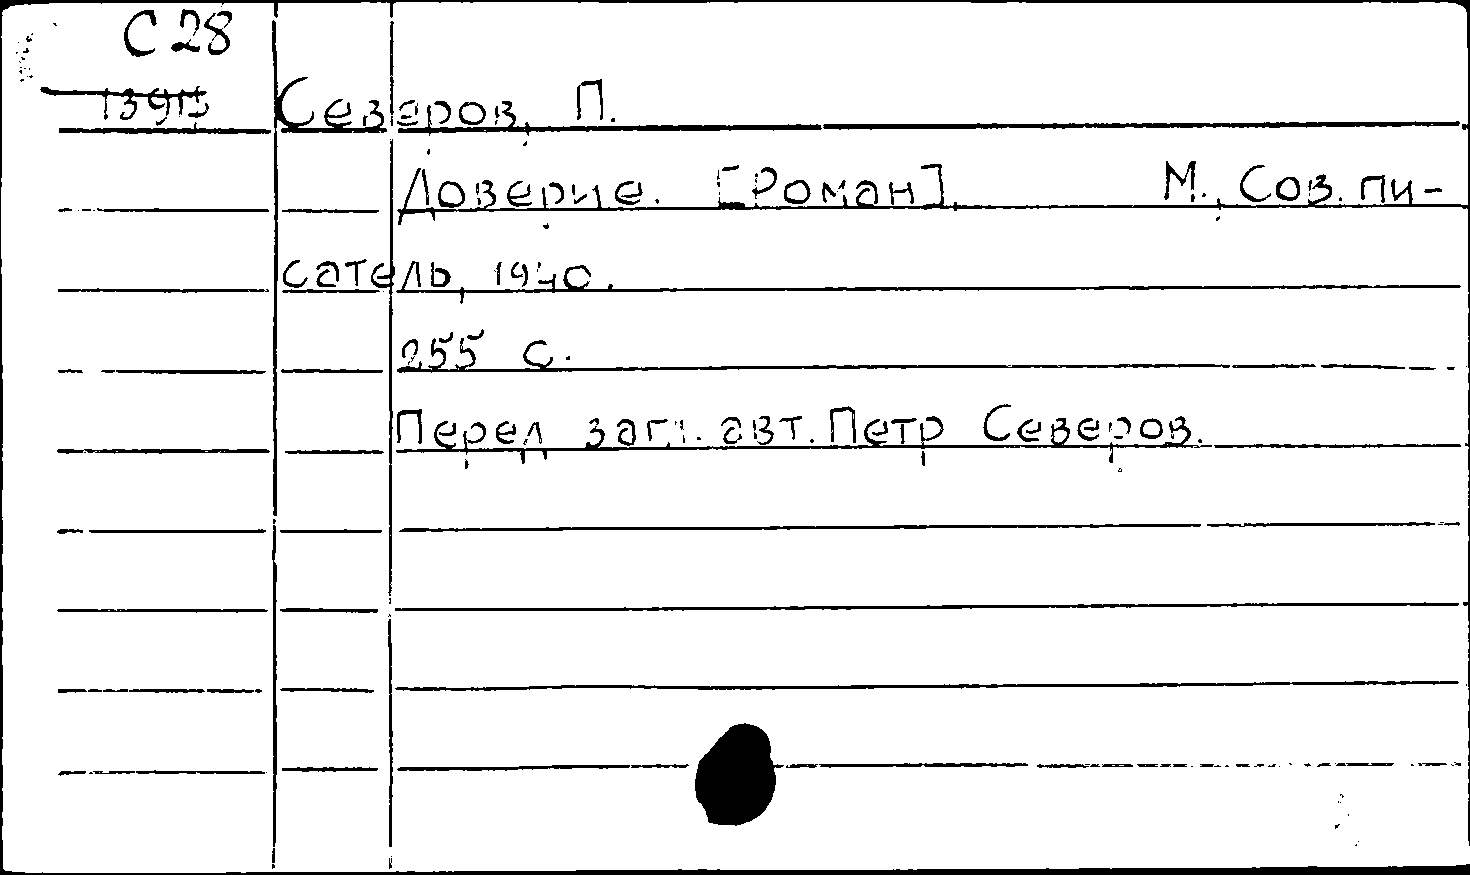 С 28
Северов, П.
Доверие. [Роман]. М., Сов. пи-
сатель, 1940.
255 с.
Перед загл. авт. Петр Северов.